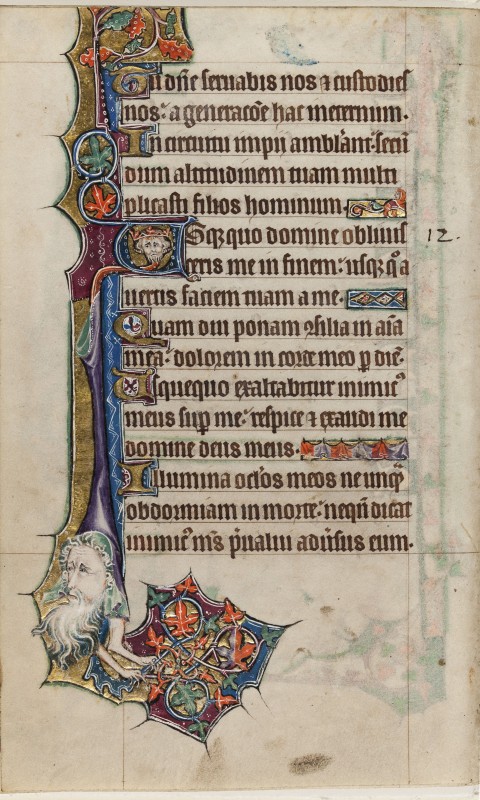 Tu dn̄e seruabis nos ⁊ custodies
nos: a generacōe hac in eternum.
In circuitu impii amblāt: secū
dum altitudinem tuam multi
plicasti filios hominum.
Vsq̄quo domine obliuis 12.
ceris me in finem: usq̄q̊ a
uertis faciem tuam a me.
Quam diu ponam ꝯsilia in aīa
mea: dolorem in corde meo ꝑ diē.
Usquequo exaltabitur inimicꝰ
meus sup̱ me: respice ⁊ exaudi me
domine deus meus.
Illumina oc̄los meos ne unq̄
obdormiam in morte: neq̄n dicat
inimicꝰ m̄s p̄ualui adūsus eum.